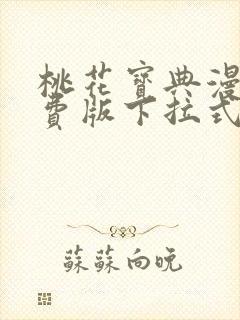 桃花寶典漫
費版下拉式
蘇蘇向晚